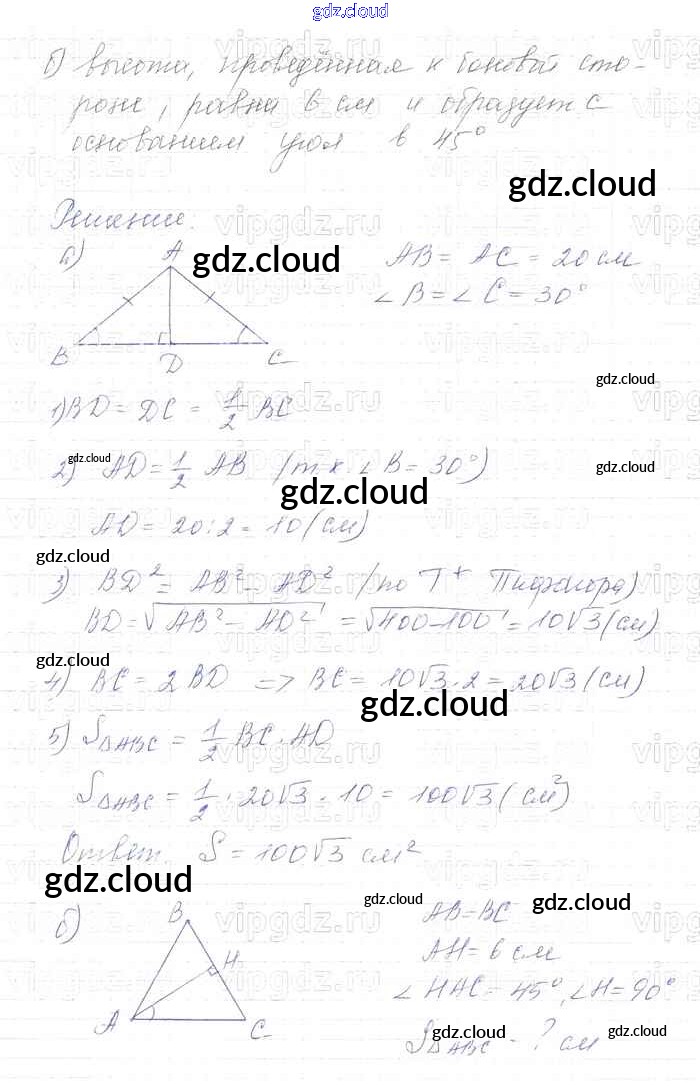 gdz.cloud
б) высота, проведённая к боковой сто-
роне, равна 6 см и образует с
основанием угол в 45°
gdz.cloud
Решение.
а)
A
gdz.cloud
AB = AC = 20 см
∠B = ∠C = 30°
B
D
C
gdz.cloud
1) BD = DC = 1/2 BC
gdz.cloud
2) AD = 1/2 AB (т.к. ∠B = 30°)
gdz.cloud
gdz.cloud
AD = 20:2 = 10 (см)
gdz.cloud
3) BD² = AB² - AD² (по Т+ Пифагора)
BD = √AB² - AD² = √400-100 = 10√3 (см)
gdz.cloud
4) BC = 2BD => BC = 10√3·2 = 20√3 (см)
gdz.cloud
5) S△ABC = 1/2 BC·AD
S△ABC = 1/2 · 20√3 · 10 = 100√3 (см²)
Ответ. S = 100√3 см²
gdz.cloud
gdz.cloud
gdz.cloud
б)
B
AB = BC
H
AH = 6 см
∠HAC = 45°, ∠H = 90°
A
C
S△ABC - ? см
gdz.cloud
gdz.cloud
vipgdz.ru